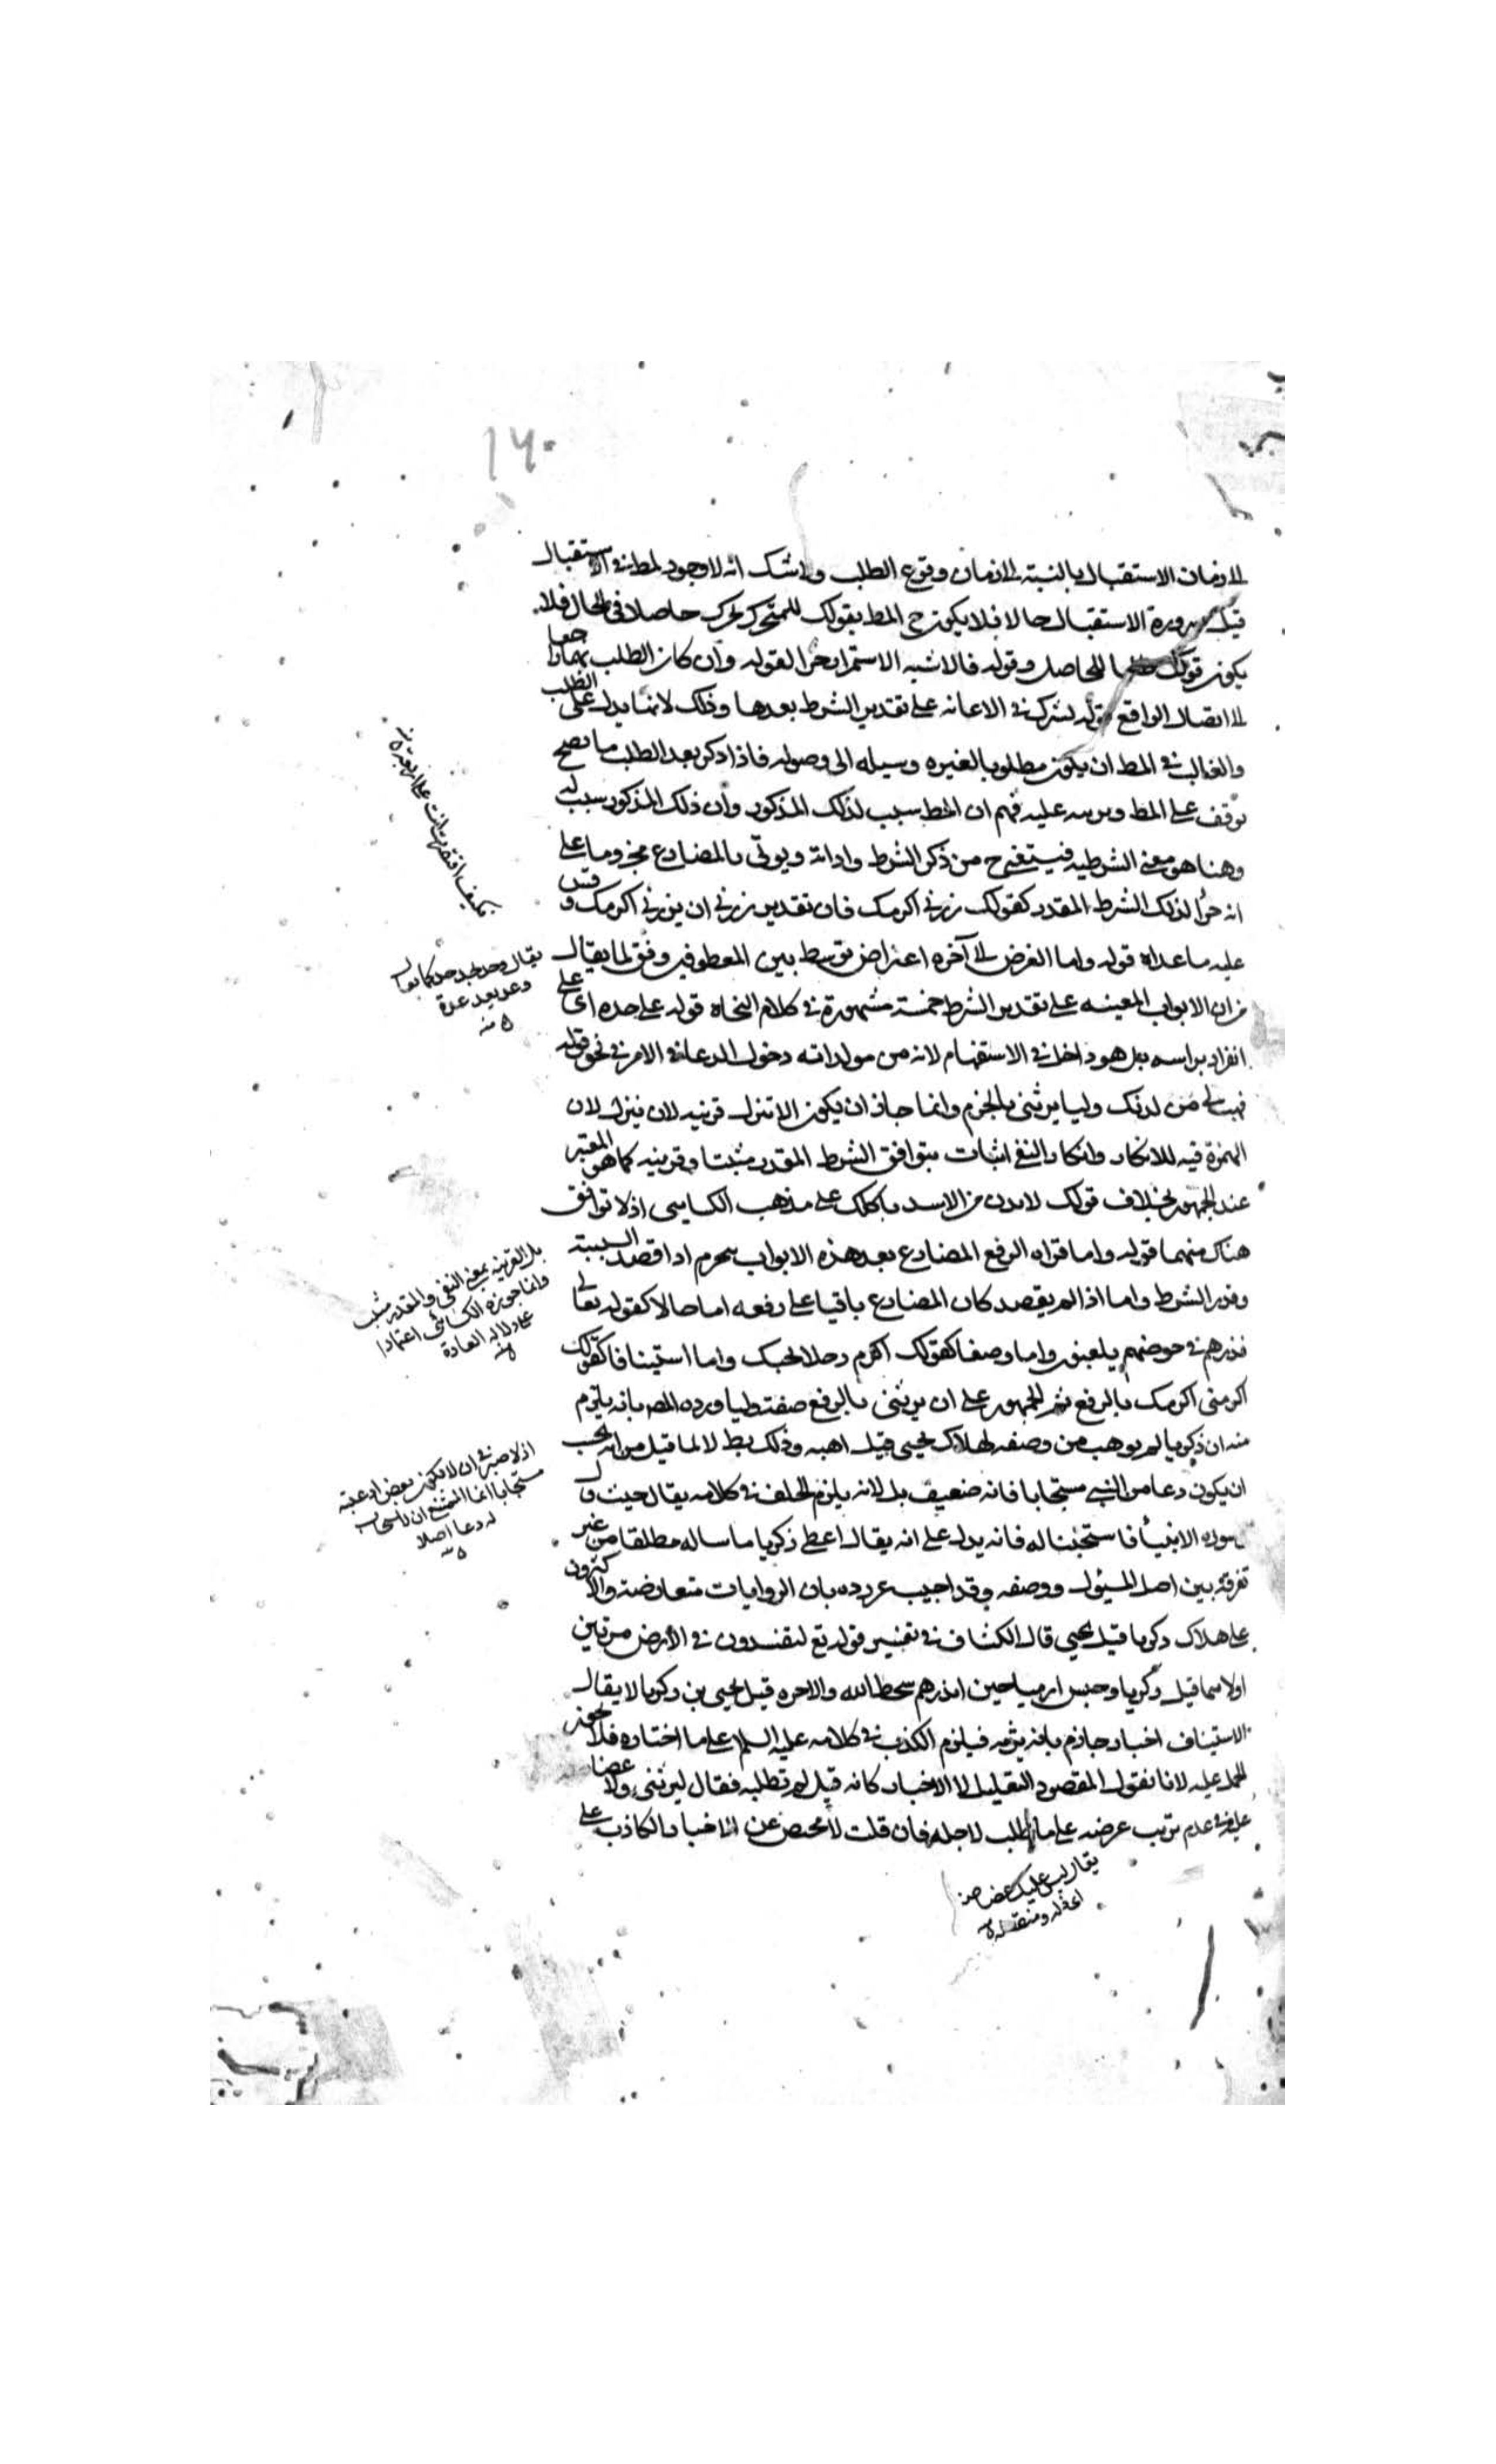 ١٦٠
الى زمان الاستقبال بالنسبة الى زمان وقوع الطلب ولا شك انه لا وجود لمط في الاستقبال
قبل صيرورة الاستقبال حالا فلا يكون ح المط بقولك للمتحرك تحرك حاصلا في الحال فلا
يكون قولك طلبا للحاصل وقوله فالاشبه الاستمرار نحو القوله وان كان الطلب بهما راجعا
الى اتصال الواقع قوله تشترك في الاعانه على تقدير الشرط بعدها وذلك لانها يدل على الطلب
والغالب في المط ان يكون مطلوبا لغيره وسيله الى وصوله فاذا ذكر بعد الطلب ما يصح
توقف على المط وترتبه عليه فهم ان المط سبب لذلك المذكور وان ذلك المذكور سبب له
وهذا هو معنى الشرطيه فيستغنى ح من ذكر الشرط واداته ويوتى بالمضارع مجزوما على
انه جزا لذلك الشرط المقدر كقولك زرني اكرمك فان تقديره زرني ان تزرني اكرمك وقس
عليه ما عداه قوله واما العرض الى آخره اعتراض توسط بين المعطوفين وفق لما يقال
من ان الابواب المعينه على تقدير الشرط خمسة مشهورة في كلام النحاه قوله على حده اى على
انفراد براسه بل هو داخل في الاستفهام لانه من مولداته دخول الدعا في الامر في نحو قوله
فهب لي من لدنك وليا يرثني بالجزم وانما جاز ان يكون الا تنزل قرينه لان تنزل لان
الهمزة فيه للانكار وانكار النفي اثبات فيتوافق الشرط المقدر مثبتا وقرينه كما هو المعتبر
عند الجمهور بخلاف قولك لا تدن من الاسد ياكلك على مذهب الكسايى اذ لا توافق
هناك منهما قوله واما قراه الرفع المضارع بعد هذه الابواب يجزم اذا قصد السببية
وقدر الشرط واما اذا لم يقصد كان المضارع باقيا على رفعه اما حالا كقوله تعالى
فذرهم في خوضهم يلعبون واما وصفا كقولك اكرم رجلا يحبك واما استينافا كقولك
اكرمني اكرمك بالرفع ثم الجمهور على ان يرثني بالرفع صفة وليا ورده المص بانه يلزم
منه ان زكريا لم يوهب من وصفه لهلاك يحيى قبل ابيه وذلك بط لا لما قيل من انه يجب
ان يكون دعا من النبي مستجابا فانه ضعيف بل لانه يلزم الخلف في كلامه يقال حيث قال
سورة الانبيأ فاستجبنا له فانه يدل على انه يقال اعطى زكريا ما ساله مطلقا من غير
تفرقة بين اصل المسؤل ووصفه وقد اجيب عن رده بان الروايات متعارضة والاكثرون
على هلاك زكريا قبل يحيى قال الكشاف في تفسير قوله تع لتفسدون في الأرض مرتين
اولاهما قتل زكريا وحبس ارميا حين انذرهم سخط الله والاخره قتل يحيى بن زكريا لا يقال
الاستيناف اخبار جازم بانه يرثه فيلزم الكذب في كلامه عليه السلم على ما اختاره فلا يجوز
الحمل عليه لانا نقول المقصود التعليل لا الاخبار كانه قيل لم تطلبه فقال ليرثني ولا غضاضه
عليه في عدم ترتب غرضه على ما طلب لاجله فان قلت لا محيص عن الاخبار الكاذب على
يقال وحد يحد حدة كما يقال
وعد يعد عدة
منه
بل القرينه بمعنى النفي والمقدر مثبت
وانما جوزه الكسائى اعتمادا
على دلاله العادة
منه
اذ لا ضير في ان لا يكون بعض ادعيته
مستجابا انما الممتنع ان لا يستجاب
له دعا اصلا
منه
يقال ليس عليك غضاضه
اى ذله ومنقصة